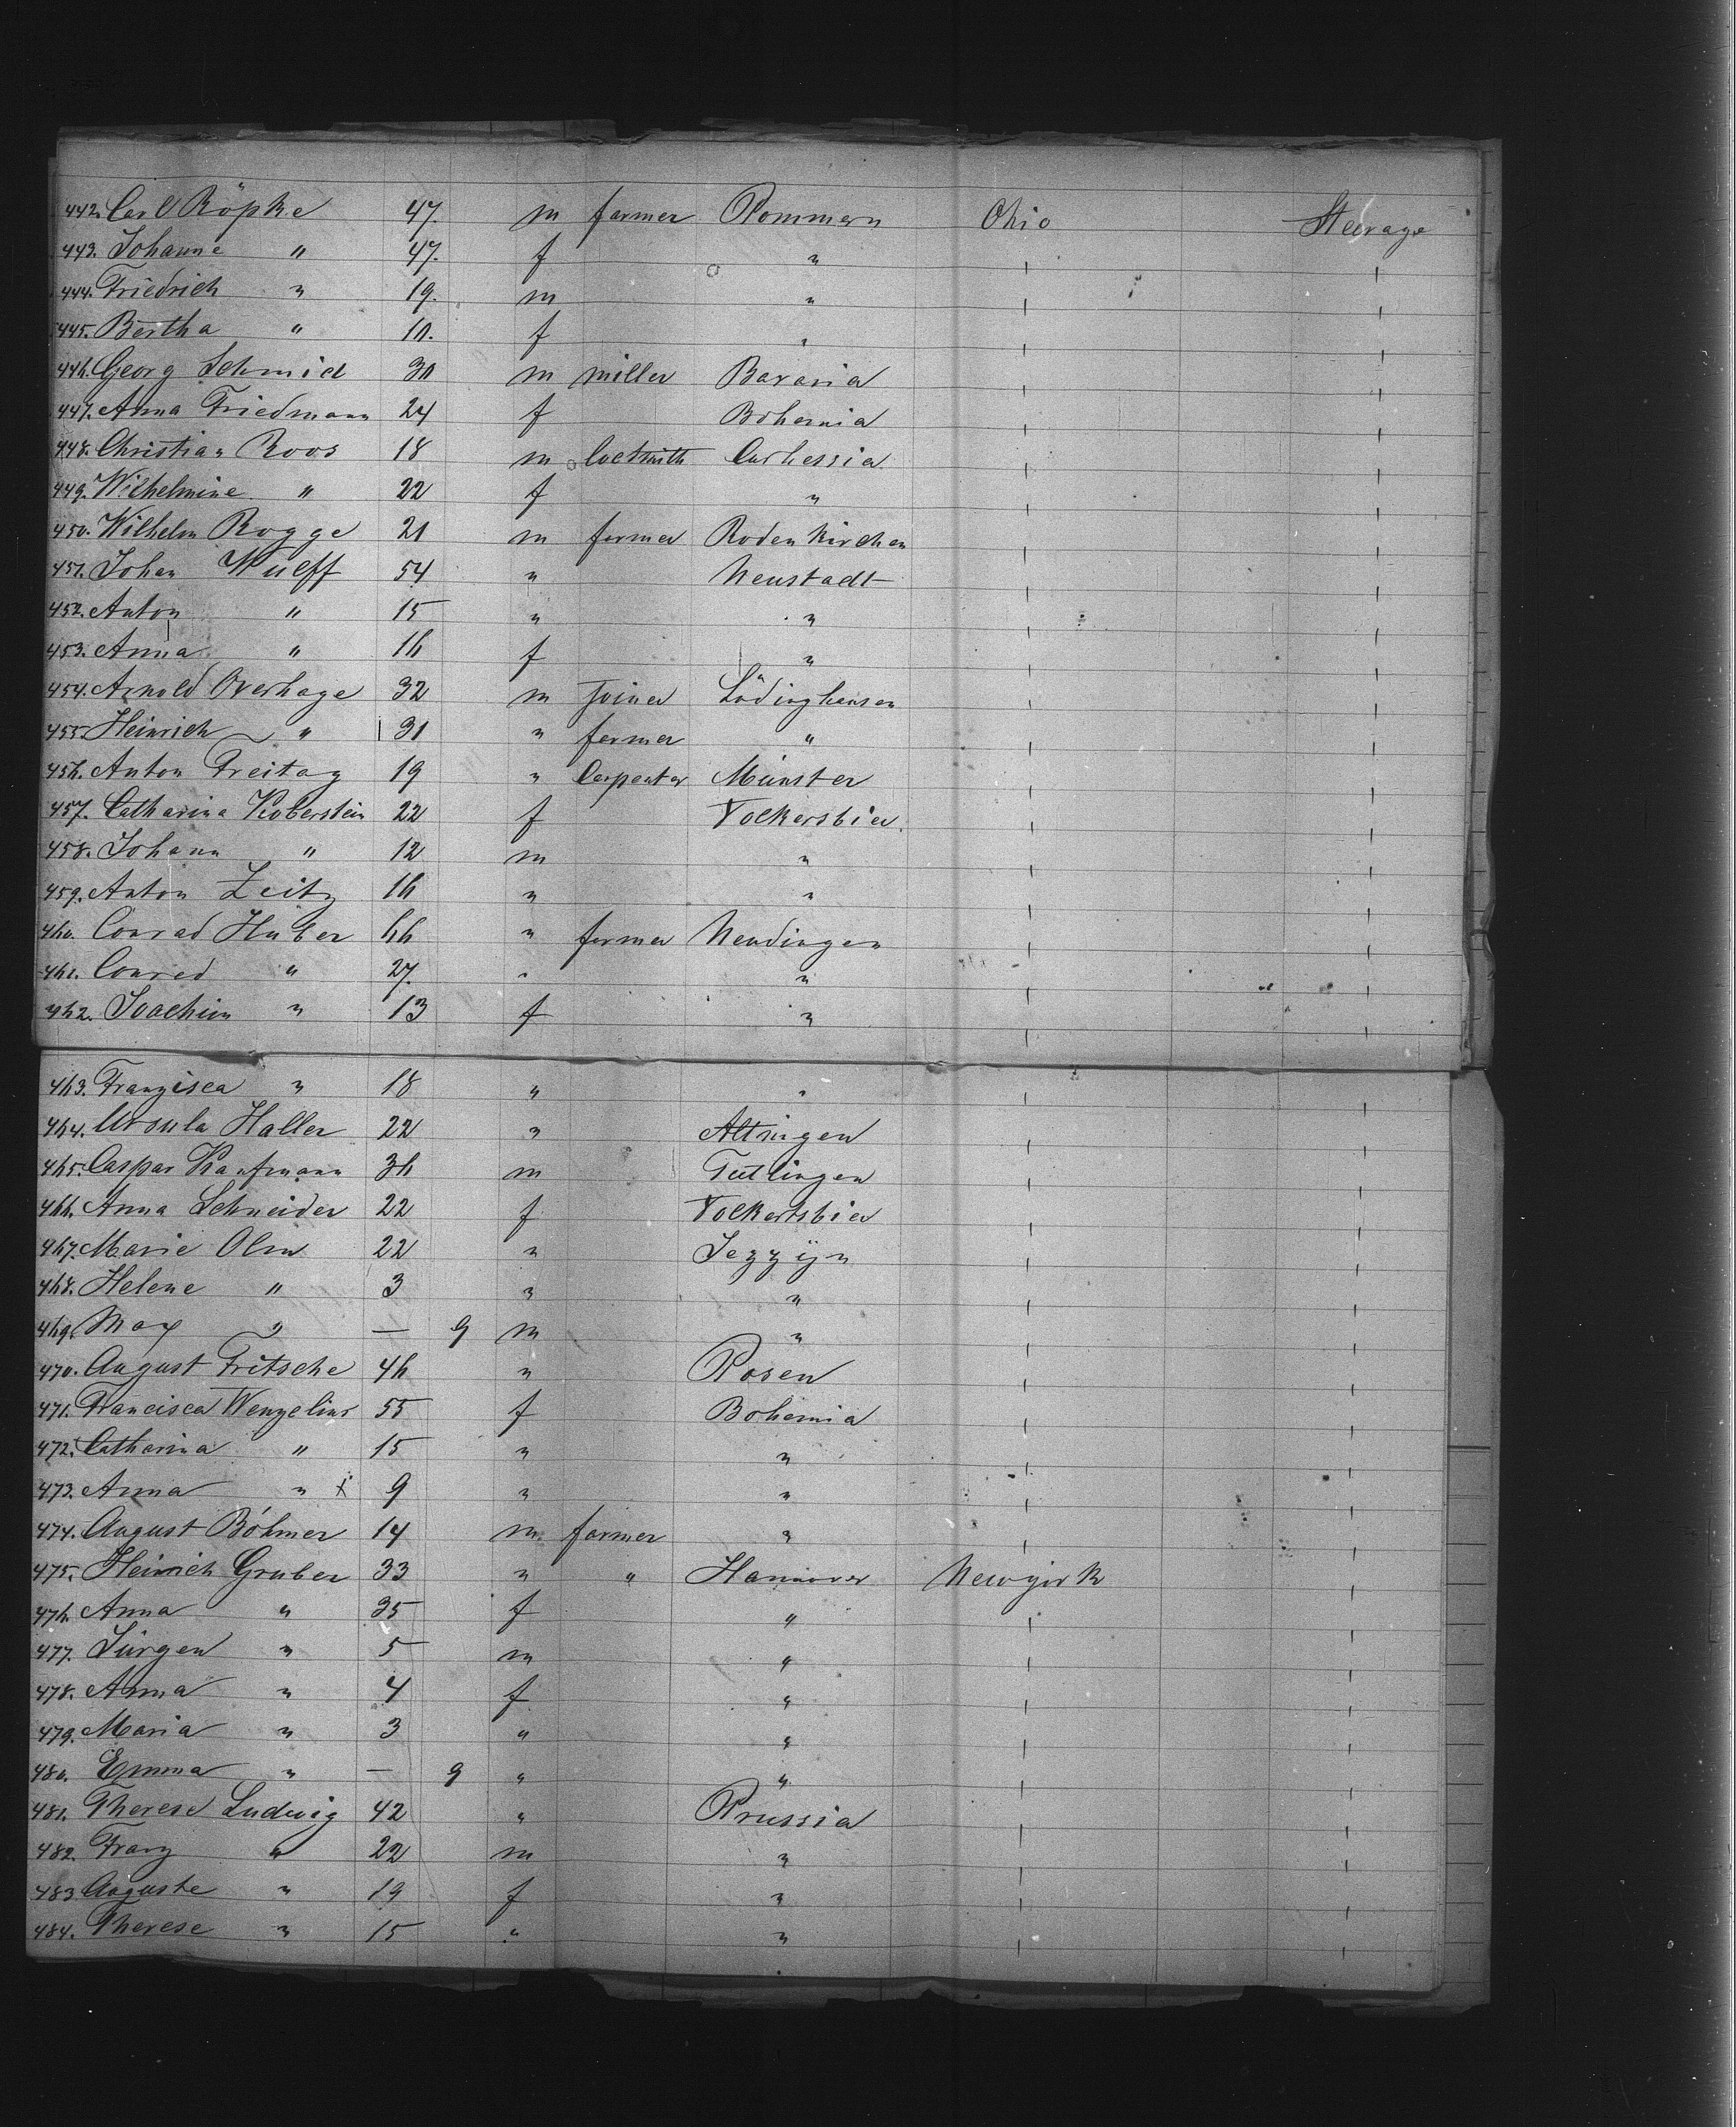 442. Carl Röpke 47. m farmer Pommern Ohio Steerage
443. Johanne " 47. f "
444. Friedrich " 19. m "
445. Bertha " 10. f "
446. Georg Schmid 30 m miller Bavaria
447. Anna Friedmann 24 f Bohemia
448. Christian Roos 18 m locksmith Curhessia
449. Wilhelmine " 22 f "
450. Wilhelm Rogge 21 m farmer Rodenkirchen
451. Johan Wulff 54 " Neustadt
452. Anton " 15 " "
453. Anna " 16 f "
454. Arnold Overhage 32 m Joiner Lüdinghausen
455. Heinrich " 31 " farmer "
456. Anton Freitag 19 " Carpenter Münster
457. Catharina Koberstein 22 f Volkersbier
458. Johann " 12 m "
459. Anton Zeitz 16 " "
460. Conrad Huber 66 " farmer Nendingen
461. Conred " 27. " "
462. Joachim " 13 f "
463. Franzisca " 18 " "
464. Ursula Haller 22 " Altingen
465. Caspar Kaufmann 36 m Tutlingen
466. Anna Schneider 22 f Volkertsbier
467. Marie Olm 22 " Jezzÿn
468. Helene " 3 " "
469. Max " — 9 m "
470. August Fritsche 46 " Posen
471. Francisca Wenzelius 55 f Bohemia
472. Catharina " 15 " "
473. Anna " x 9 " "
474. August Böhmer 14 m farmer "
475. Heinrich Gruber 33 " " Hannover Newyork
476. Anna " 35 f "
477. Jürgen " 5 m "
478. Anna " 4 f "
479. Maria " 3 " "
480. Emma " — 9 " "
481. Therese Ludwig 42 " Prussia
482. Franz " 22 m "
483 Auguste " 19 f "
484. Therese " 15 " "